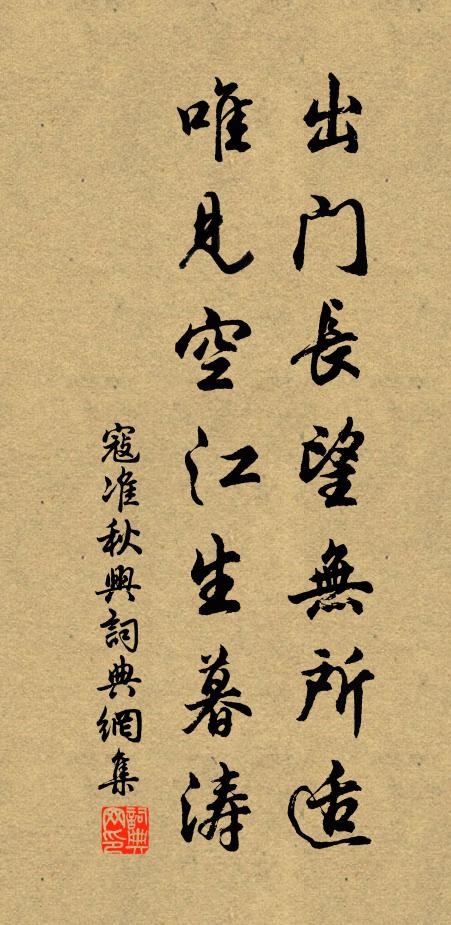 出门長望無所适
唯見空江生暮涛
寇准秋興詞典網集
詞典网印